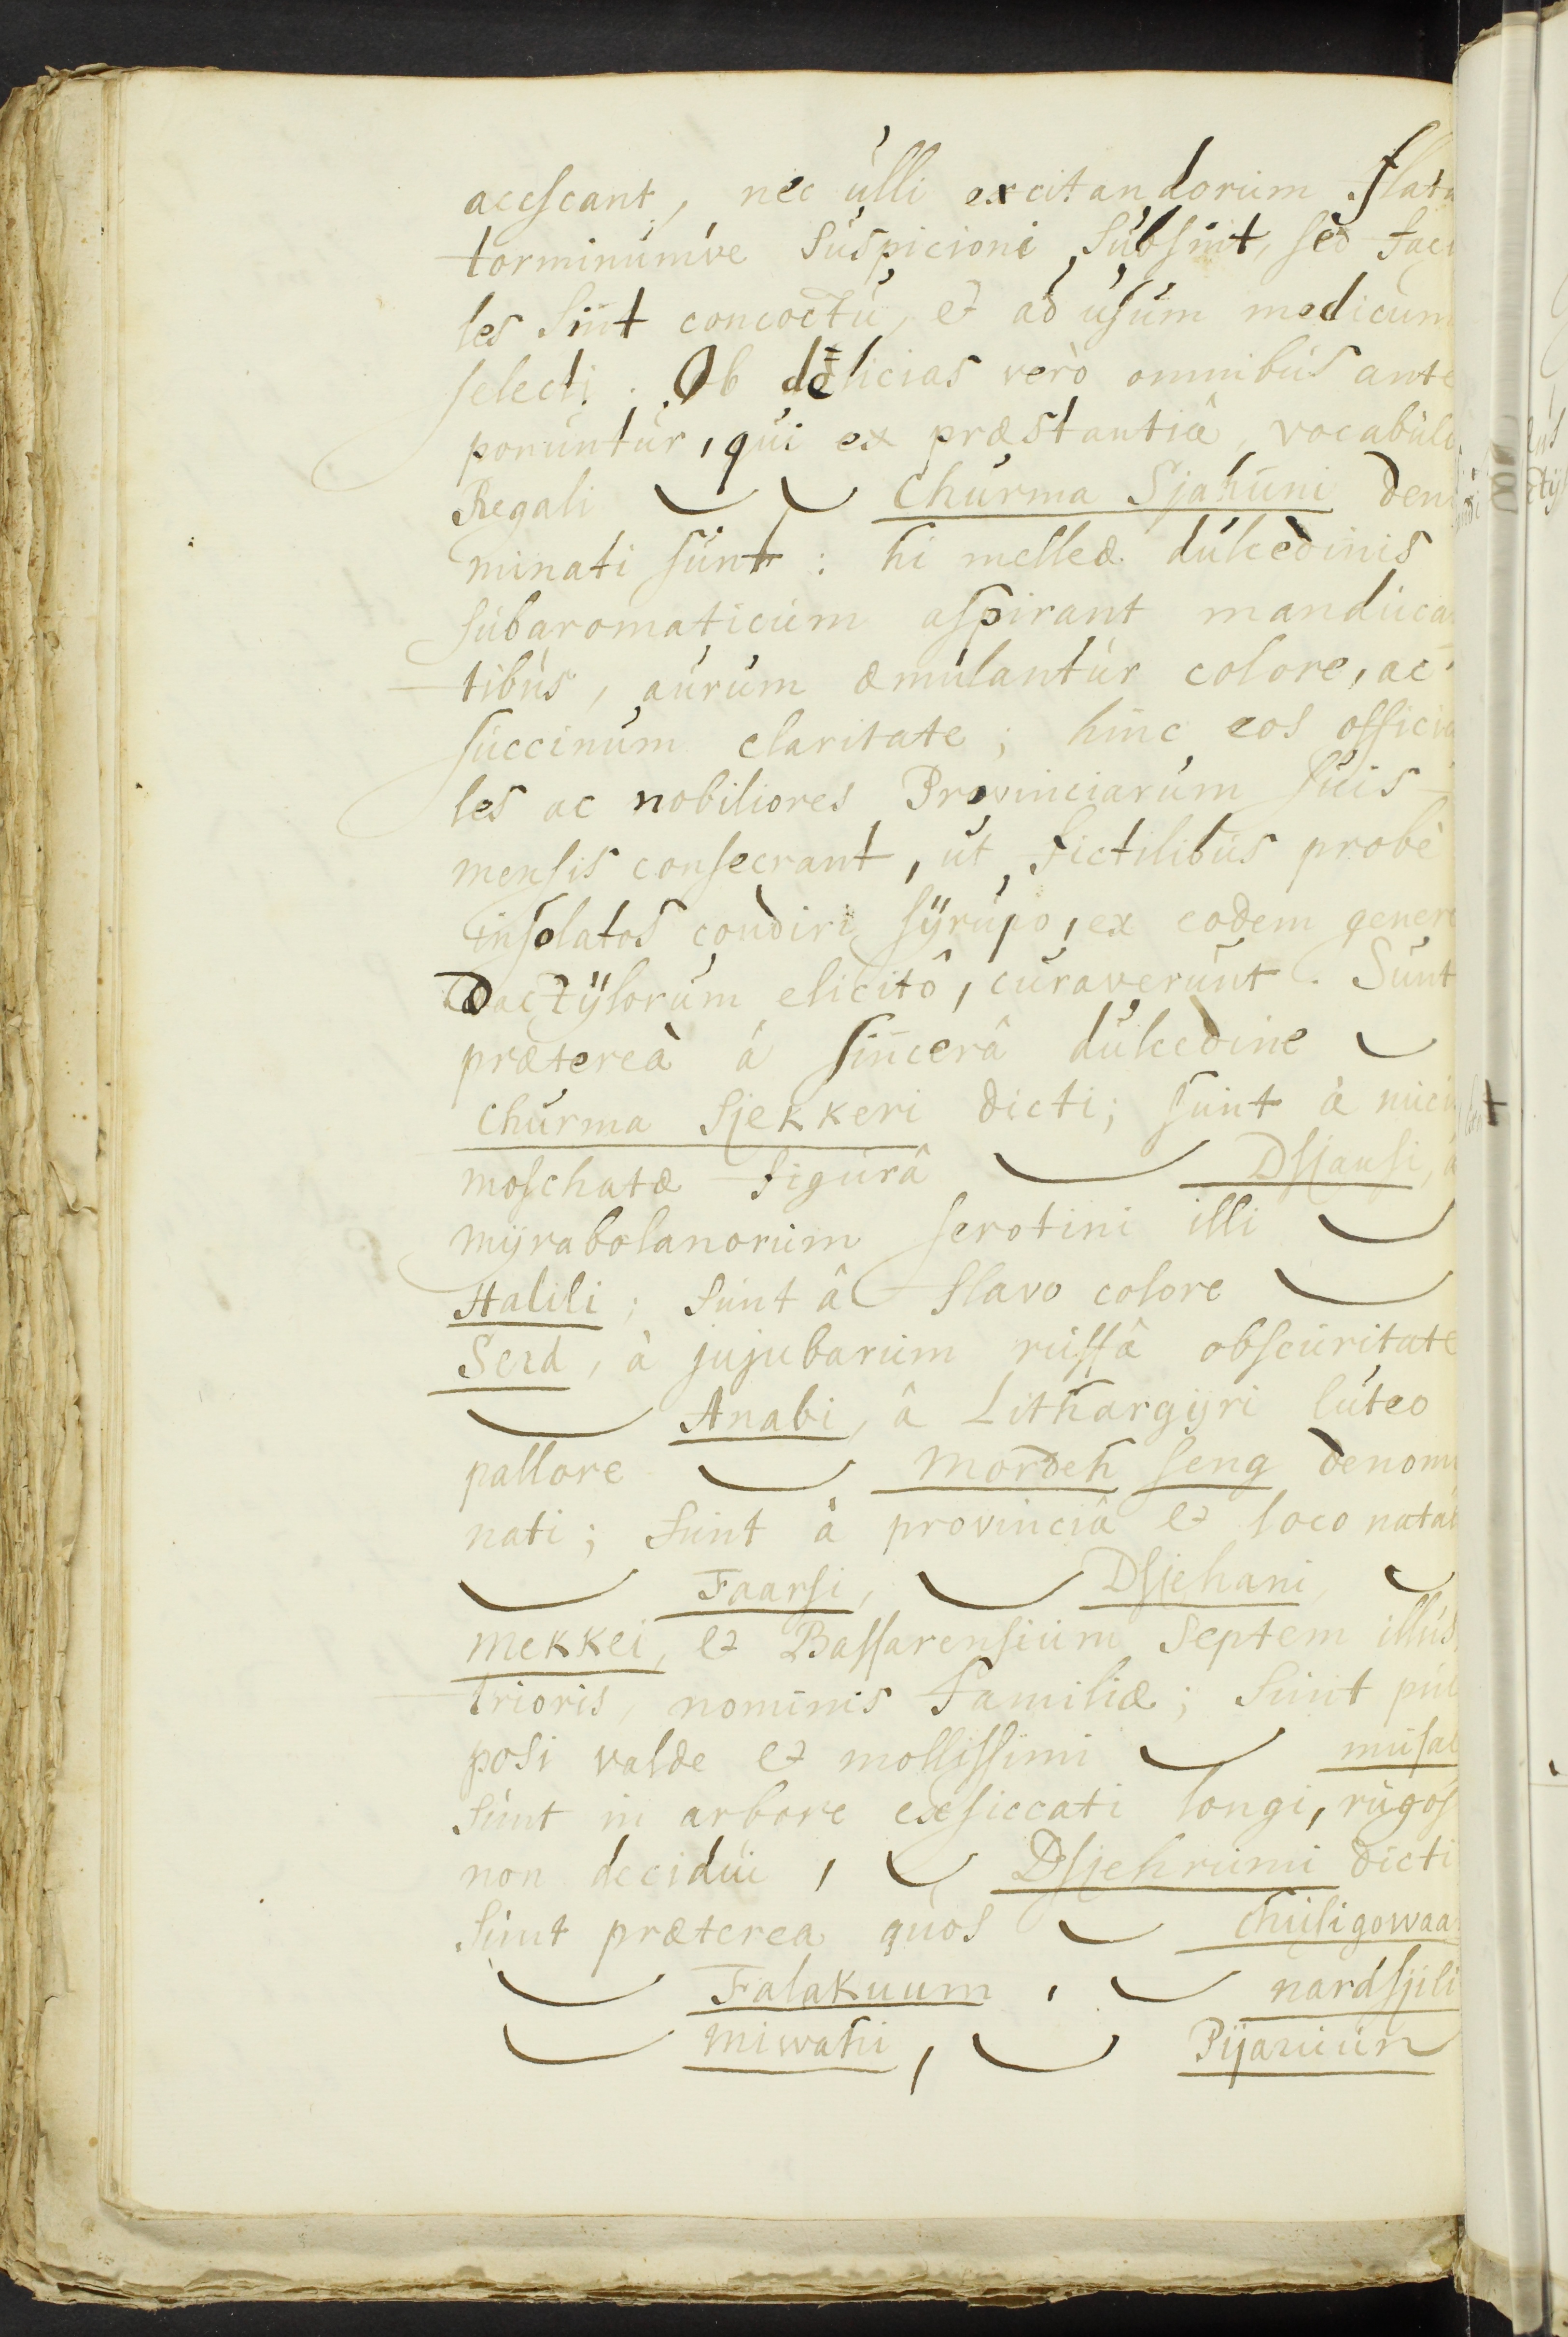 acescant, nec ulli excitandorum flatu
torminumve suspicioni subsint, sed faci
les sint concoctu, et ad usum medicum
selecti. Ob delicias verò omnibus ante
ponuntur, qui ex præstantiâ, vocabulo
Regali Churma Sjahuni den
minati sunt: hi melleæ dulcedinis
subaromaticum aspirant manduca
tibus, aurum æmulantur colore, ac
succinum claritate; hinc eos officia
les ac nobiliores Provinciarum suis
mensis consecrant, ut fictilibus probè
insolatos condiri sÿrupo, ex eodem genere
dactÿlorum elicitô, curaverunt. Sunt
prætereà à sincerâ dulcedine
Churma Sjekkeri dicti; sunt à nuci
moschatæ figurâ Dsjausi, à
mÿrabolanorum serotini illi
Halili; sunt â flavo colore
Serd, à jujubarum russâ obscuritate
Anabi, â Lithargÿri luteo
pallore Mordeh seng denomi
nati; sunt à provinciâ et loco nata
Faarsi, Dsjehani,
Mekkei, et Bassarensium septem illus
trioris, nominis familiæ; sunt pul
posi valde et mollissimi musa
sunt in arbore exsiccati longi, rugos
non decidui, Dsjehrumi dicti
sunt præterea quos Chuligowaa
Falakuum, nardsjili
Miwahi, Pijaruun